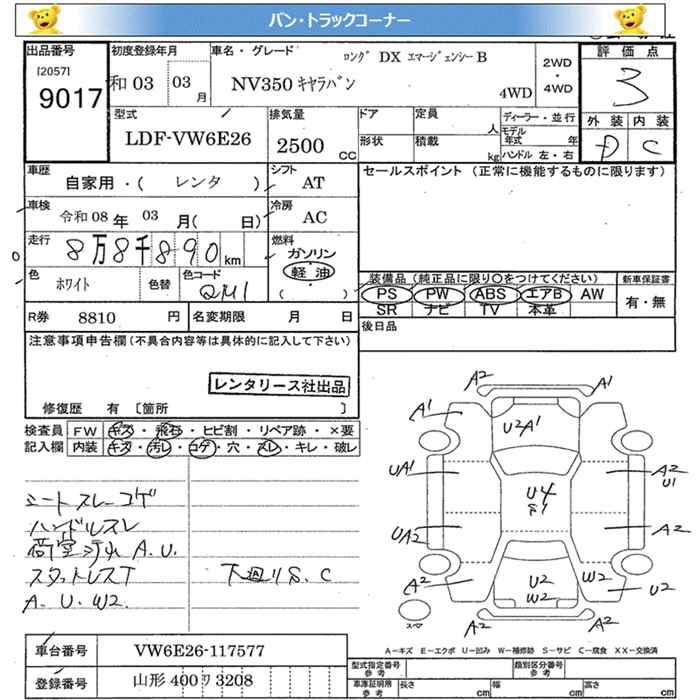 バン・トラックコーナー
出品番号
[2057]
9017
初度登録年月
和03 03 月
車名・グレード
ロング DX エマージェンシーB
NV350 キャラバン
4WD
2WD
・
4WD
評価点
3
外装 内装
D C
型式
LDF-VW6E26
排気量
2500 CC
ドア
形状
定員
人
積載
kg
ディーラー・並行
モデル
年式 年
ハンドル 左・右
車歴
自家用・( レンタ )
シフト
AT
セールスポイント (正常に機能するものに限ります)
車検
令和08年 03 月( 日)
冷房
AC
走行
8万8千890 km
燃料
ガソリン
軽油
( )
色
ホワイト
色替
色コード
QM1
装備品 (純正品に限り○をつけてください)
PS PW ABS エアB AW
SR ナビ TV 本革
新車保証書
有・無
R券 8810 円
名変期限 月 日
後日品
注意事項申告欄 (不具合内容等は具体的に記入して下さい)
レンタリース社出品
修復歴 有 [箇所 ]
検査員
記入欄
FW キズ・飛石・ヒビ割・リペア跡・×要
内装 キズ・汚レ・コゲ・穴・スレ・キレ・破レ
シートスレコゲ
ハンドルスレ
荷室汚れ A.U.
スタットレスT
A.U.W2
下廻りS.C
A2
A1
A1
U2A1
UA1
A2
U1
U4
UA2
A2
A2
U2
W2
W2
U2
A2
A2
スマ
A-キズ E-エクボ U-凹み W-補修跡 S-サビ C-腐食 XX-交換済
車台番号 VW6E26-117577
登録番号 山形 400 ワ 3208
型式指定番号
参考
類別区分番号
参考
車庫証明用
参考
長さ cm
幅 cm
高さ cm